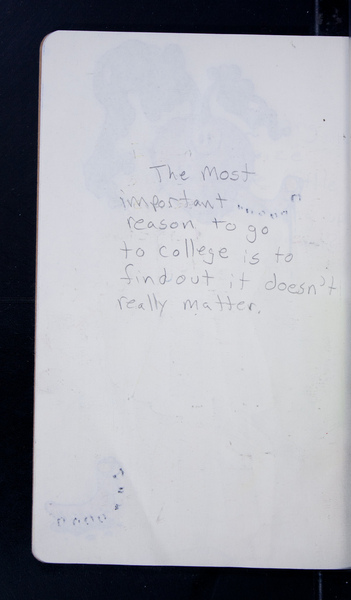 The Most
important
reason to go
to college is to
find out it doesn't
really matter.